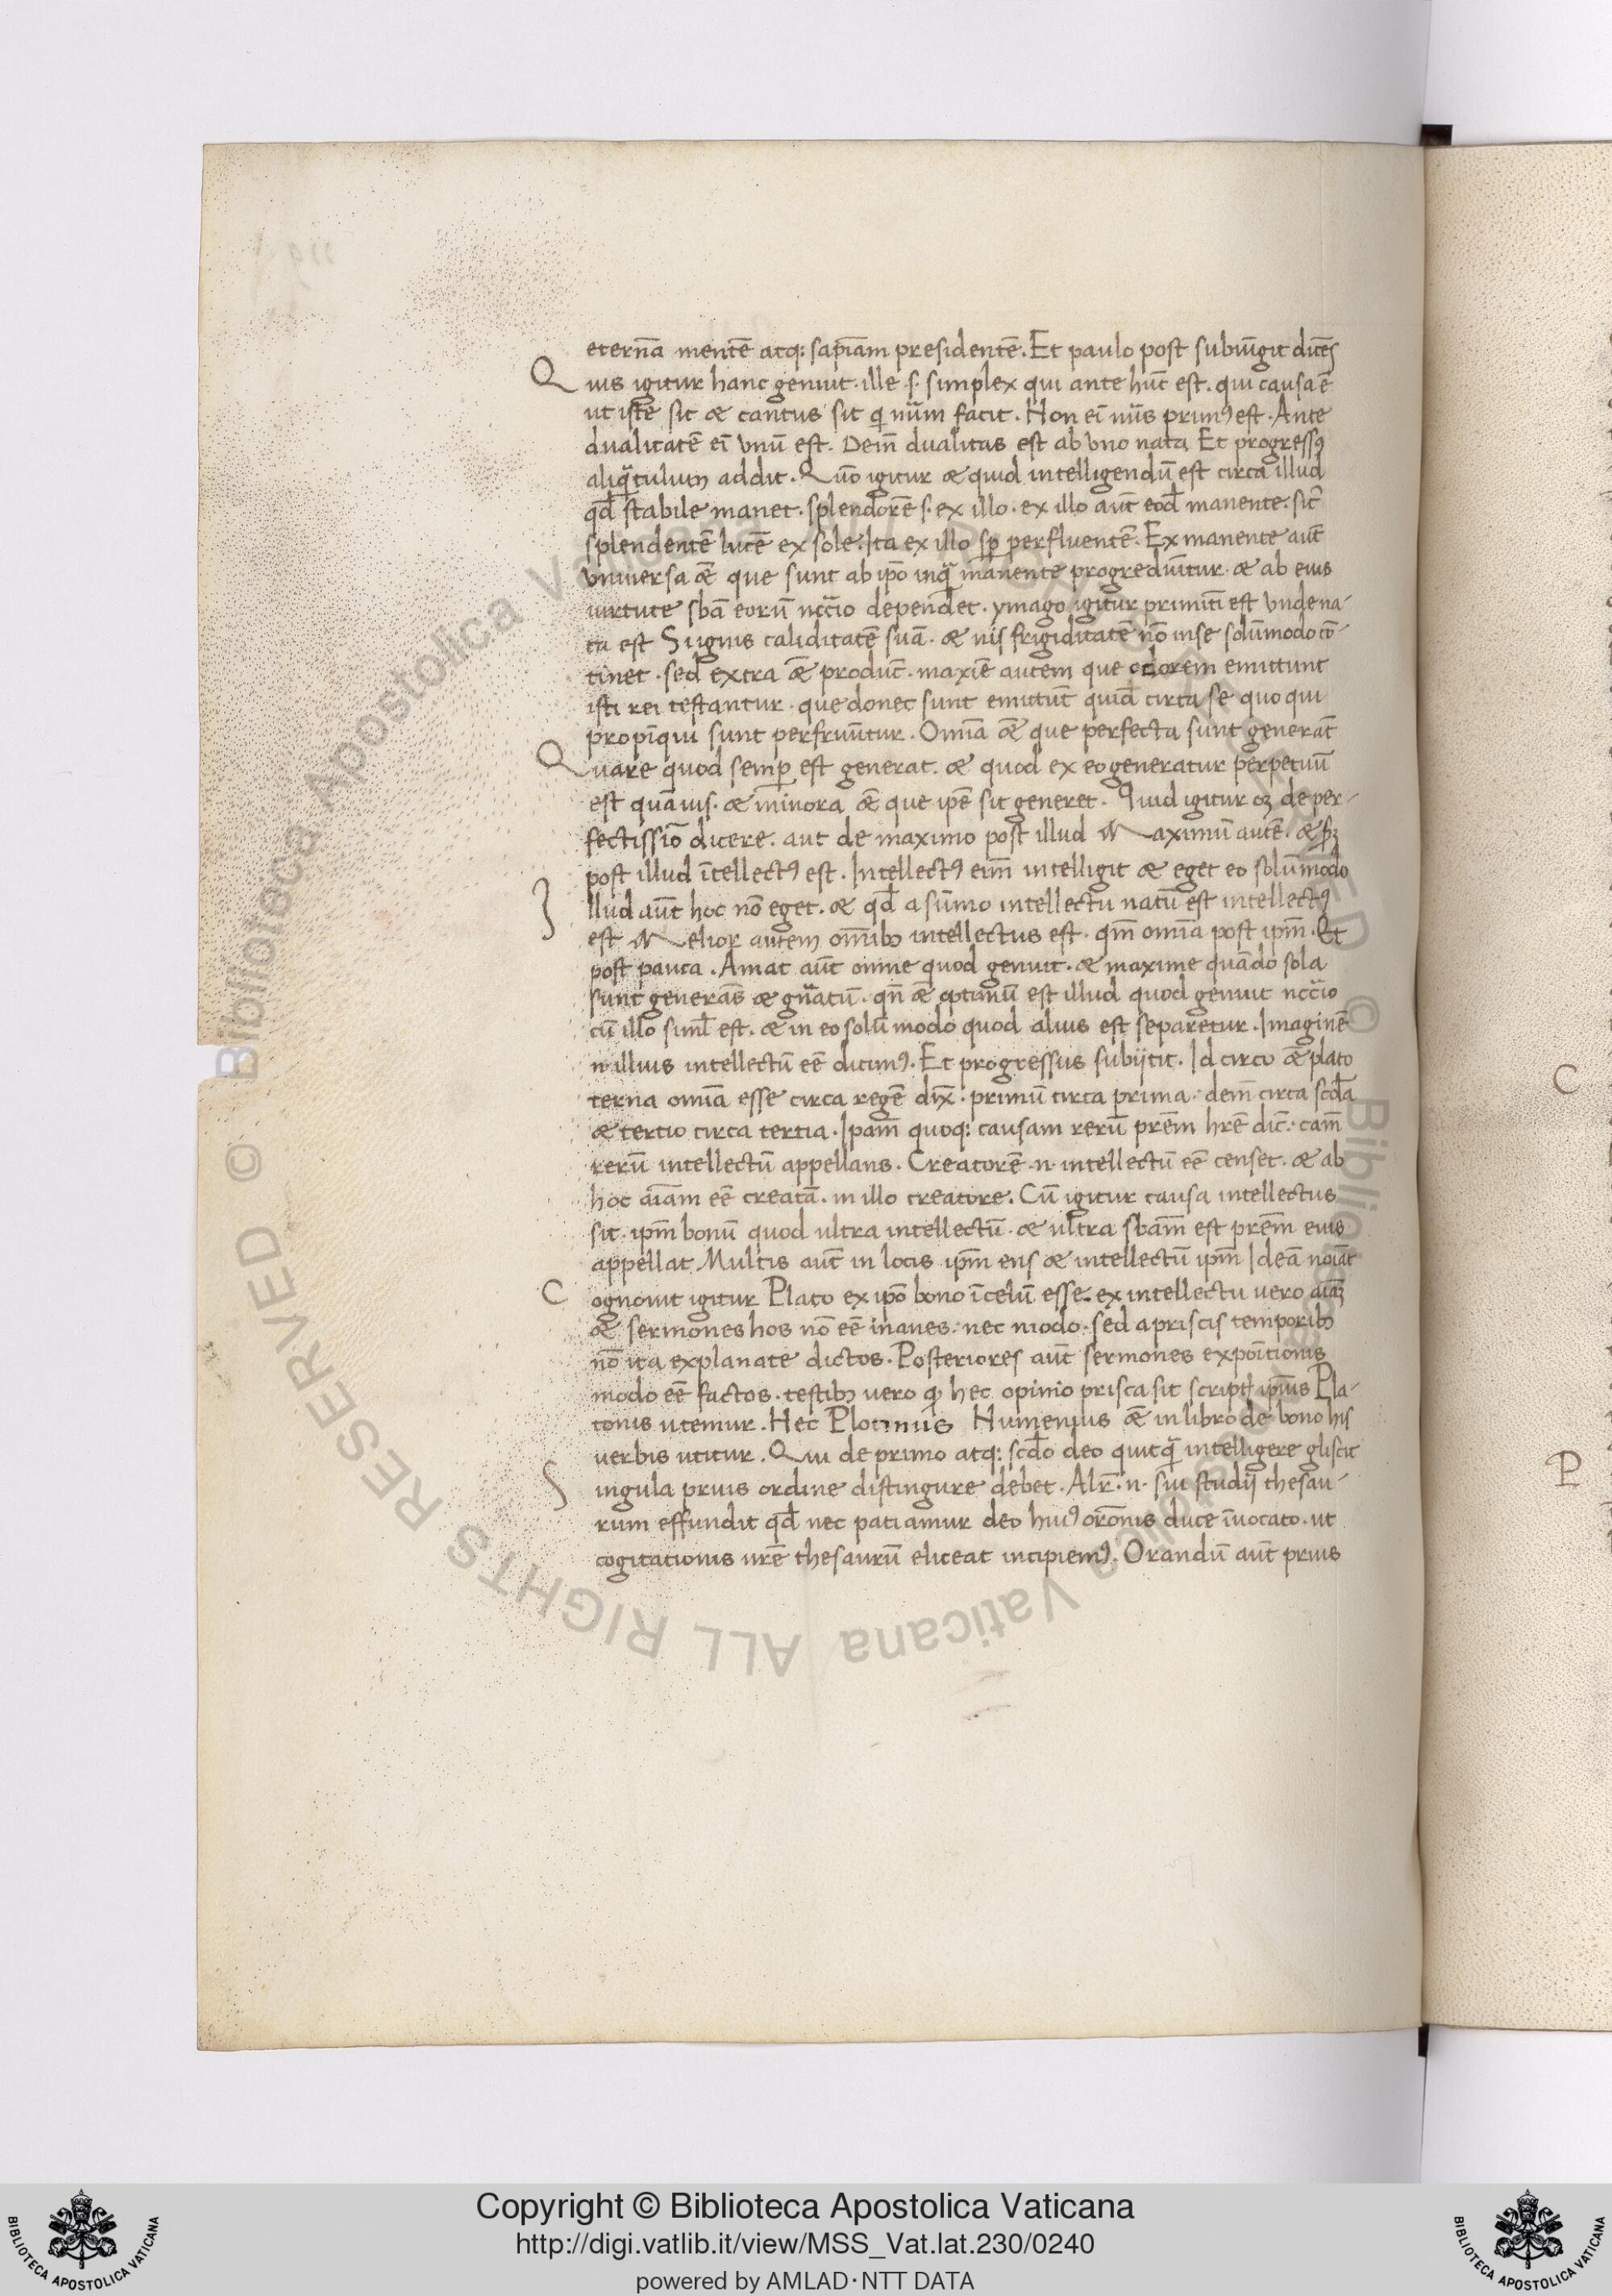 eternā mentē atq: sapiam presidentē. Et paulo post subiūgit dicēs
Quis igitur hanc genuit. ille .s. simplex qui ante hūc est. qui causa ē
ut iste sit & tantus sit facit. Non primꝰ est. Ante
dualitatē ei vnū est. Dein dualitas est ab vno nata Et progressꝰ
aliq̄tulum addit. Quō igitur & quid intelligendū est circa illud
qd̄ stabile manet. splendorē s. ex illo. ex illo aūt eod̄ manente. sic̄
splendentē lucē ex sole. Ita ex illo sp̄ perfluentē. Ex manente aūt
vniuersa ēē que sunt ab ip̄o inq̄ manente progrediūtur. & ab eius
uirtute sbā eorū nccīo dependet. ymago igitur primiti est vnde na-
ta est Signis caliditatē suā. & niſ frigiditatē nō inse solūmodo cō-
tinet. sed extra producit. maxīe autem que odorem emittunt
isti rei testantur. que donec sunt emittūt quid circa se quo qui
propīqui sunt perfruūtur. Omīa que perfecta sunt generāt
Quare quod semp̄ est generat. & quod ex eo generatur perpetuū
est quāuis. & minora que ip̄e sit generet. Quid igitur oꝫ de per-
fectissīo dicere. aut de maximo post illud Maximū autē. &
post illud ītellectꝰ est. Intellectꝰ eīm intelligit & eget eo solūmodo
Illud aūt hoc nō eget. & qd̄ a sūmo intellectu natū est intellectꝰ
est Melior autem omībꝫ intellectus est. qm̄ omīa post ipm̄. Et
post pauca. Amat aūt omne quod genuit. & maxime quādo sola
sunt generās & gnatū. qn̄ optimū est illud quod genuit nccīo
cū illo siml̄ est. & in eo solū modo quod alius est separetur. Imaginē
n. illius intellectū eē dicimꝰ. Et progressus subijcit. Idcirco plato
terna omīa esse circa regē dix̄. primū circa prima. dein̄ circa scd̄a
& tertio circa tertia. Ipam̄ quoq: causam rerū prēm hrē dic̄. cām
rerū intellectū appellans. Creatorē .n. intellectū eē censet. & ab
hoc aīam eē creatā. in illo creatore. Cū igitur causa intellectus
sit. ipm̄ bonū quod ultra intellectū. & ultra sbām est prēm eius
appellat Multis aūt in locis ipm̄ ens & intellectū ipm̄ Ideā noīat
Cognouit igitur Plato ex ipō bono īcelū esse. ex intellectu vero aīaꝫ
& sermones hos nō eē inanes. nec modo. sed a priscis temporibꝫ
nō ita explanate dictos. Posteriores aūt sermones expoītionis
modo eē factos. testibꝫ vero hec opinio prisca sit script ipīus Pla-
tonis utemur. Hec Plotinus Numenius in libro de bono his
uerbis utitur. Qui de primo atq: scd̄o deo quicq̄ intelligere gliscit
Singula prius ordine distingure debet. Alr̄ .n. sui studij thesau-
rum effundit qd̄ nec patiamur deo huiꝰ orōnis duce īuocato. ut
cogitationis nrē thesaurū eliceat incipiemꝰ. Orandū aūt prius
C
P
© Biblioteca Apostolica Vaticana ALL RIGHTS RESERVED
Copyright © Biblioteca Apostolica Vaticana
http://digi.vatlib.it/view/MSS_Vat.lat.230/0240
powered by AMLAD·NTT DATA
BIBLIOTECA APOSTOLICA VATICANA
BIBLIOTECA APOSTOLICA VATICANA